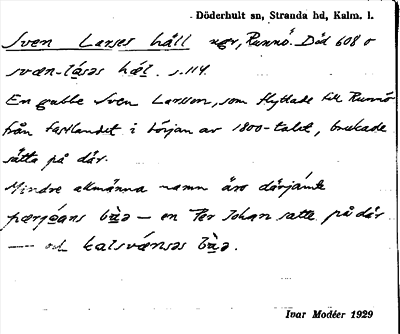 Döderhult sn, Stranda hd, Kalm. l.
Sven Larses håll ugr, Runnö. Död 608 o
svæn-lásəs hæl. s. 114.
En gubbe Sven Larsson, som flyttade till Runnö
från fastlandet i början av 1800-talet, brukade
sätta på där.
Mindre allmänna namn äro därjämte
pærjéans bùə – en Per Johan satte på där
— och kalsvænsəs bùə.
Ivar Modéer 1929